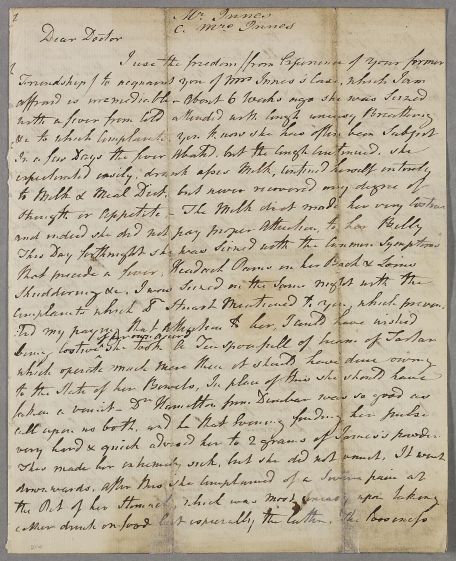 Mr Innes
C. Mrs Innes
Dear Doctor
I use the freedom (from Experience of your former
Friendship) to acquaint you of Mrs Innes's Case, which I am
affraid is irremediable - About 6 Weeks ago she was Seized
with a fever from Cold attended with Cough uneasy Breathing
&c to which Complaints you know she has often been Subject
In a few Days the fever Abated, but the Cough Continued, she
expectorated easily, drank asses Milk, confined herself intirely
to Milk & Meal Diet, but never recovered any degree of
strength or Appetite - The Milk diet made her very Costive
and indeed she did not pay proper Attention to her Belly
This Day fortnight she was Seized with the Common Symptoms
that precede a fever, Headach Pains in her Back & Loins
Shuddering &c. I was Seized on the Same night with the
Complaints which Dr Stuart Mentioned to you, which preven-
ted my paying that Attention to her, I could have wished
being Costive she took a Teaspoonfull of Cream of Tartar
which operate much more then it should have done owing
to the State of her Bowels, In place of this she should have
taken a vomit - Dr Hamilton from Dunbar was so good as
call upon us both, and he that Evening finding her pulse
very hard & quick advised her to 2 grains of James's powder
This made her extremely sick, but she did not vomit. It went
downwards. After this she Complained of a Severe pain at
the Pit of her Stomach, which was most uneasy upon taking
either drink or food but especially the latter. the Looseness